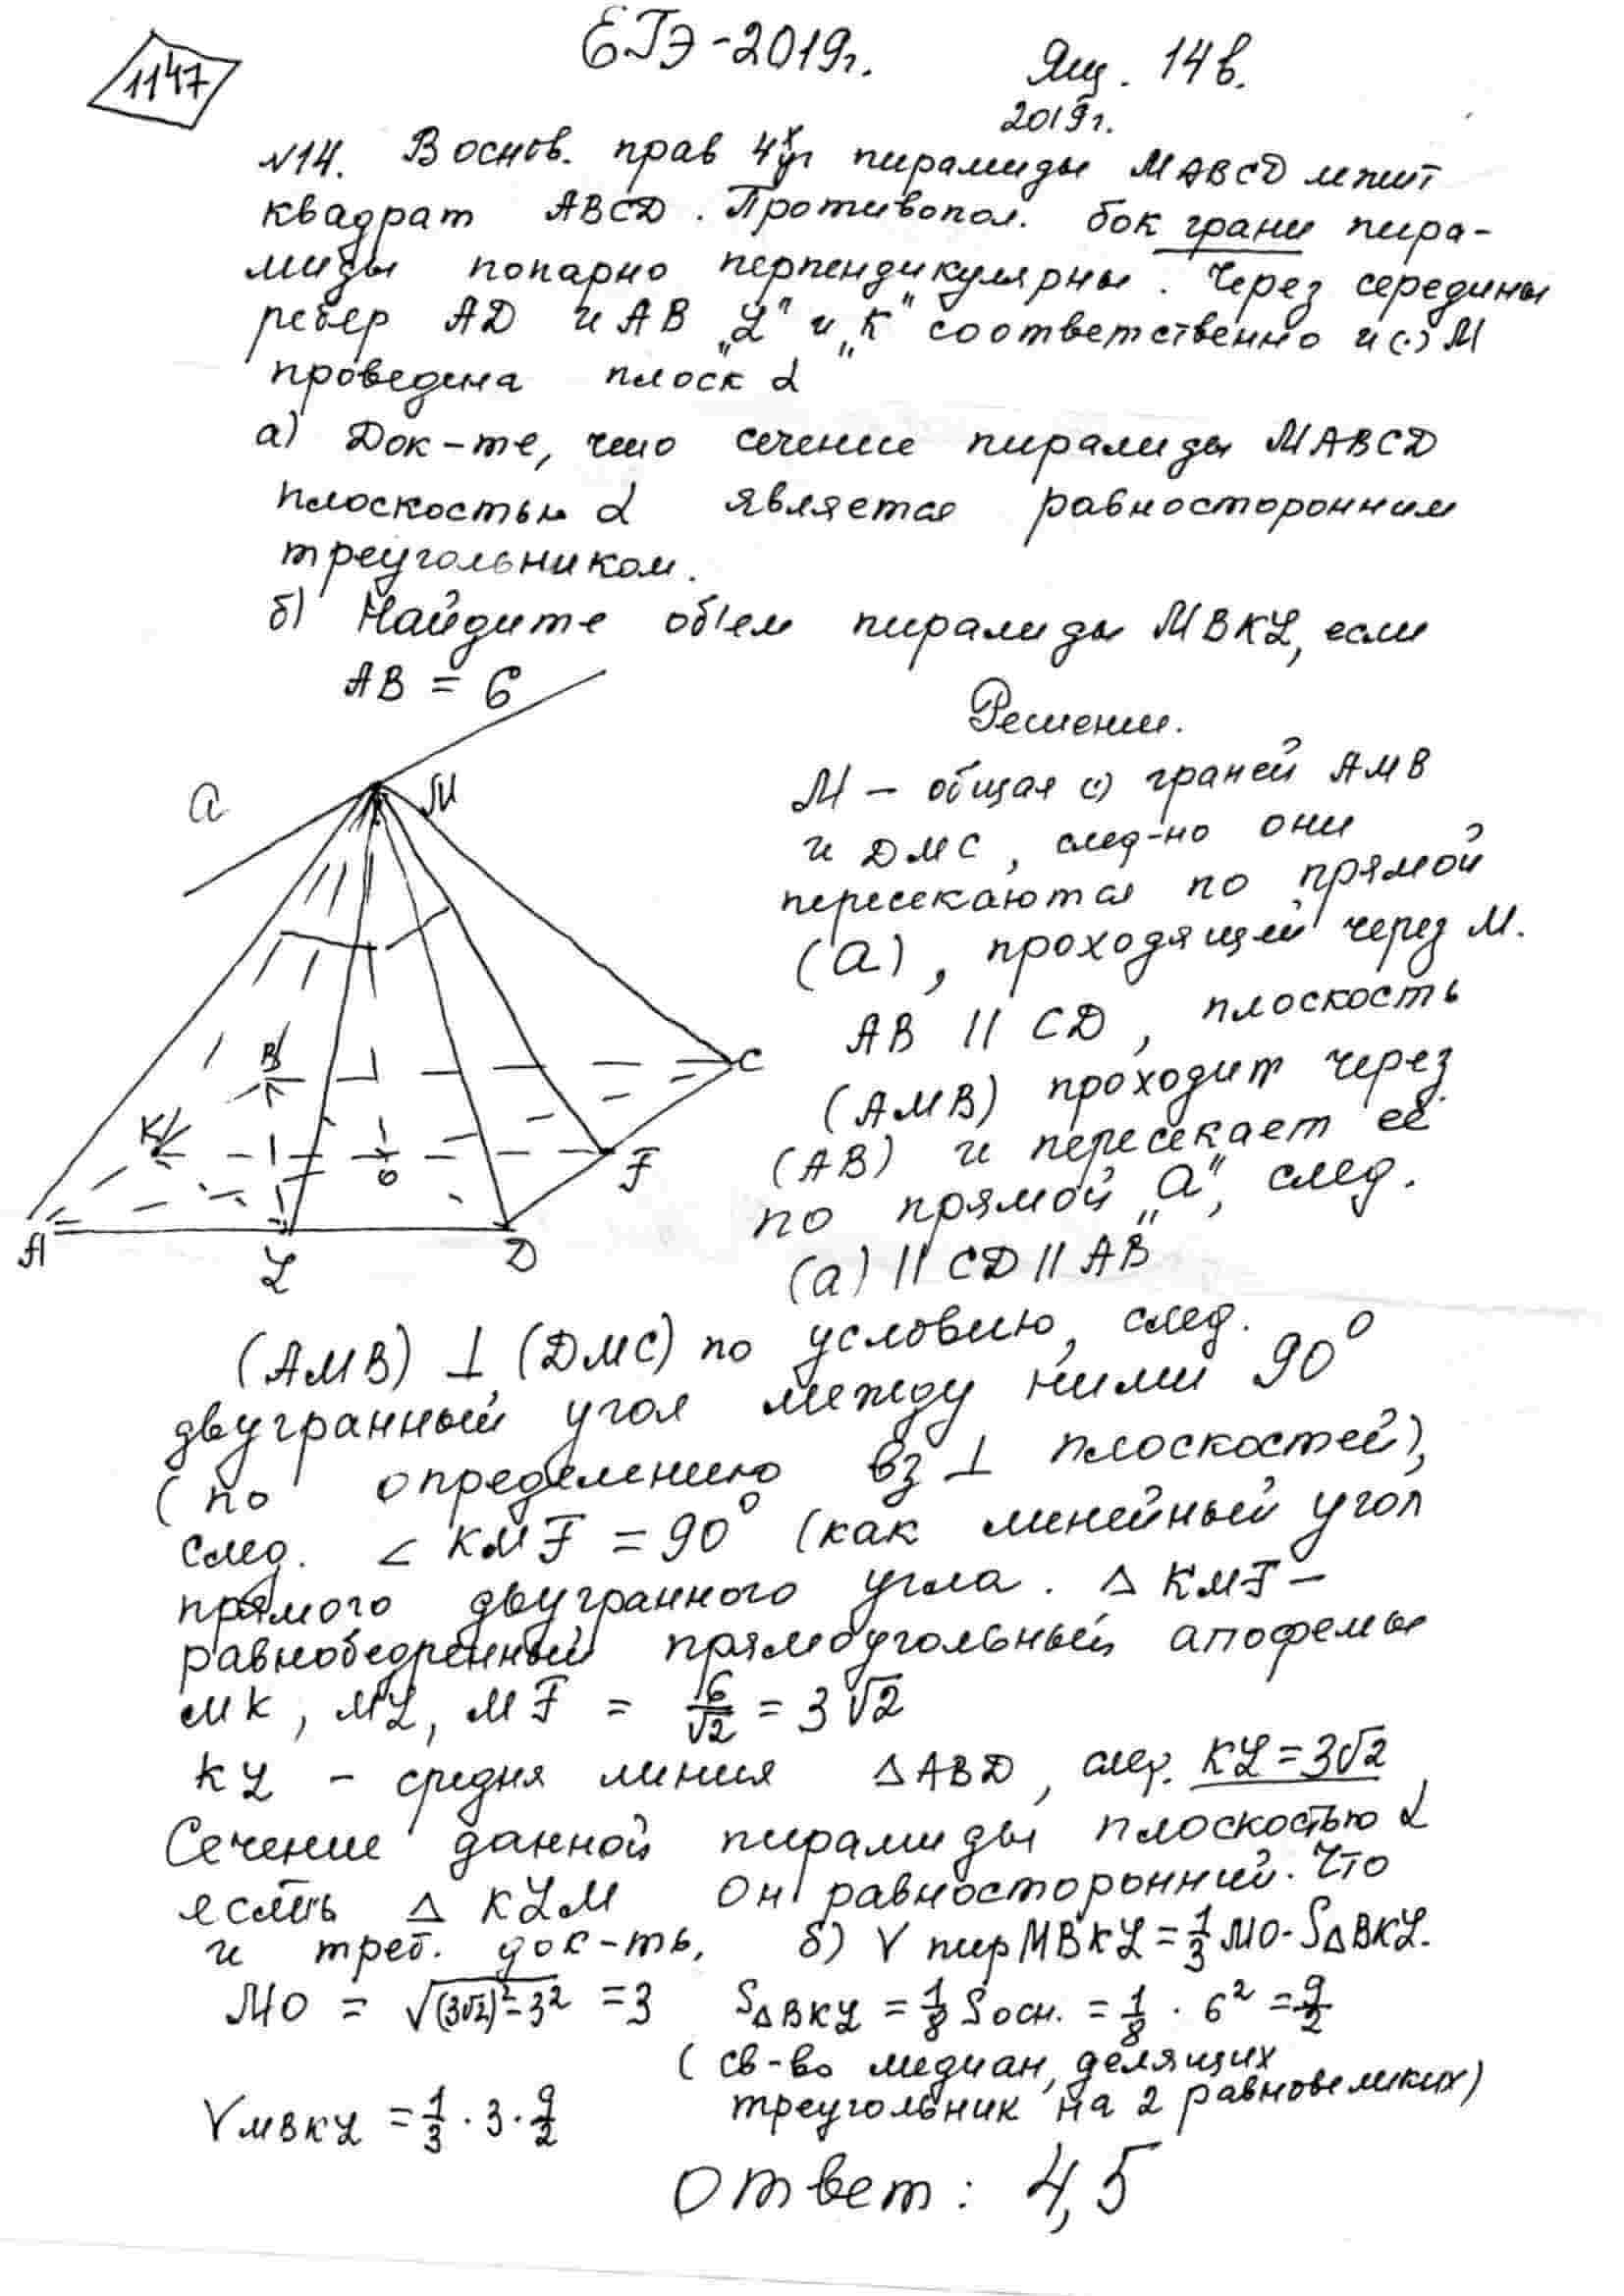 1147
ЕГЭ-2019г.
Ящ. 14в.
2019г.
№14. В основ. прав 4х уг пирамиды MABCD лежит
квадрат ABCD. Противопол. бок грани пира-
миды попарно перпендикулярны. Через середины
ребер AD и AB „L" и „K" соответственно и (·) M
проведена плоск α
а) Док-те, что сечение пирамиды MABCD
плоскостью α является равносторонним
треугольником.
б) Найдите объем пирамиды MBKL, если
AB = 6
Решение.
a
M
B
C
K
O
F
A
L
D
M – общая (·) граней AMB
и DMC, след-но они
пересекаются по прямой
(a), проходящей через M.
AB || CD, плоскость
(AMB) проходит через
(AB) и пересекает её
по прямой „a", след.
(a) || CD || AB
(AMB) ⊥ (DMC) по условию, след.
двугранный угол между ними 90°
(по определению вз ⊥ плоскостей),
след. ∠ KMF = 90° (как линейный угол
прямого двугранного угла. Δ KMF –
равнобедренный прямоугольный, апофемы
MK, ML, MF = 6/√2 = 3√2
KL – средня линия ΔABD, след. KL = 3√2,
Сечение данной пирамиды плоскостью α
есть Δ KLM Он равносторонний. Что
и треб. док-ть.
б) V пир MBKL = 1/3 MO · SΔBKL.
MO = √((3√2)² – 3²) = 3
SΔBKL = 1/8 Sосн. = 1/8 · 6² = 9/2
(св-во медиан, делящих
треугольник на 2 равновеликих)
VMBKL = 1/3 · 3 · 9/2
Ответ: 4,5